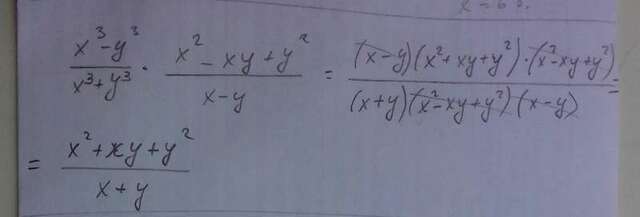 x³-y³/x³+y³ · x²-xy+y²/x-y = (x-y)(x²+xy+y²)·(x²-xy+y²)/(x+y)(x²-xy+y²)(x-y) =
= x²+xy+y²/x+y